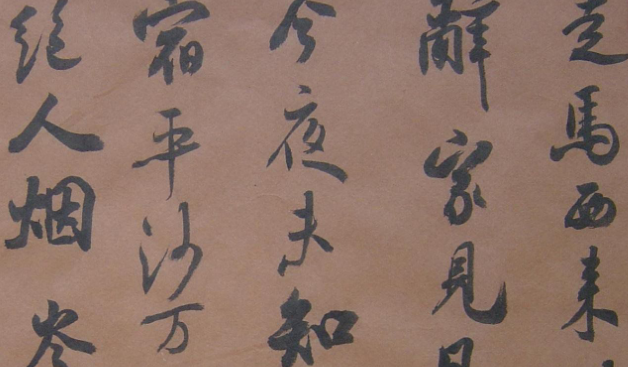 走馬西來
辭家見月
今夜未知
宿平沙万
絕人烟 岑